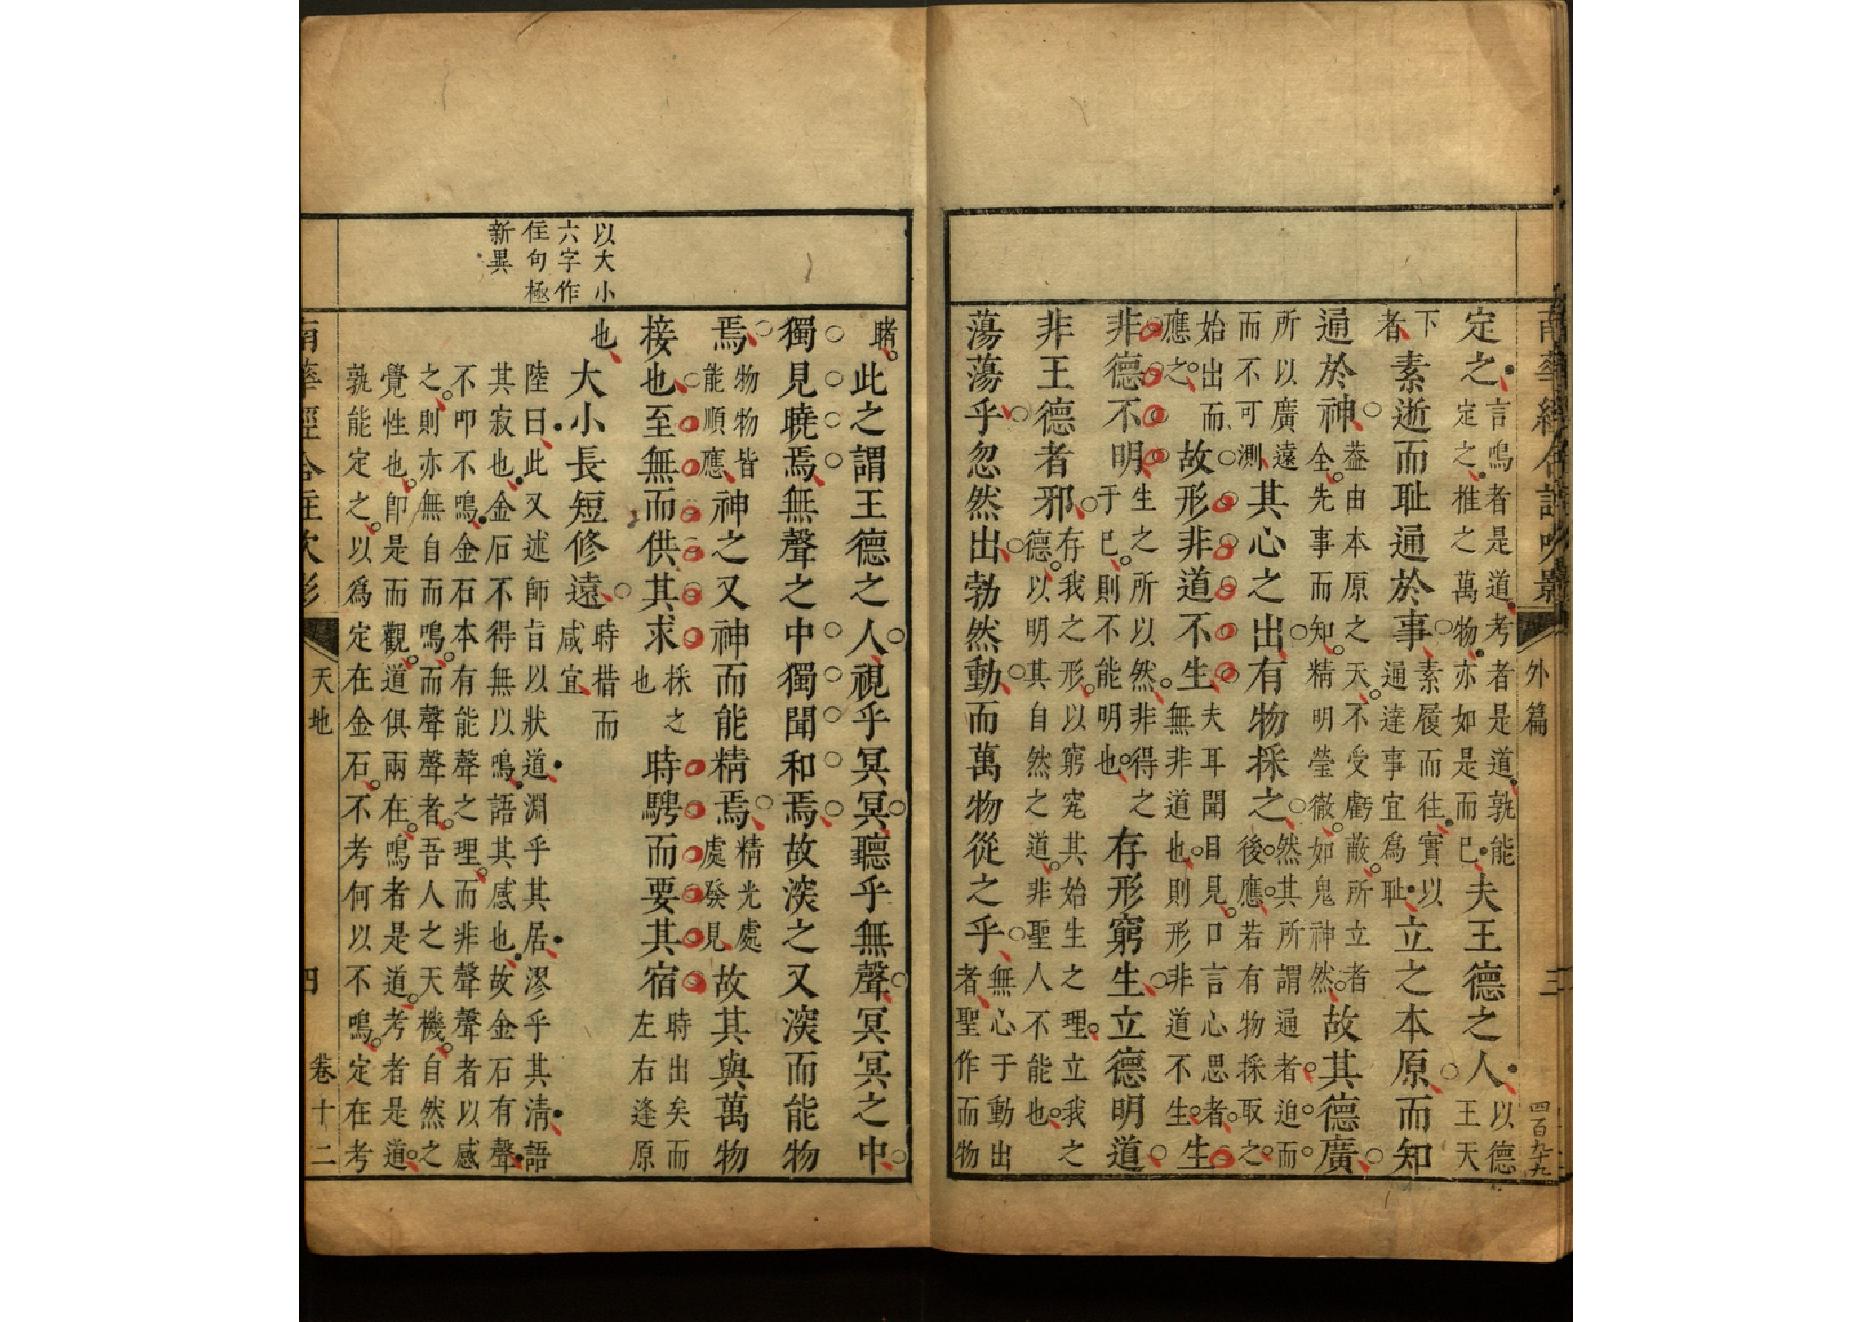 南華經合註吹影
外篇
三
四百九十九
定之言鳴者是道考者是道孰能
定之椎之萬物亦如是而已夫王德之人以德
王天
下
者素逝而耻通於事素履而往實以
通達事宜爲耻立之本原而知
通於神葢由本原之天不受虧蔽所立者
全先事而知精明瑩徹如鬼神然故其德廣
所以廣遠
而不可測其心之出有物採之然其所謂通者迫而
後應若有物採取之
始出而
應之故形非道不生夫耳聞目見口言心思者
無非道也則形非道不生生
非德不明生之所以然非得之
于已則不能明也存形窮生立德明道
非王德者邪存我之形以窮究其始生之理立我之
德以明其自然之道非聖人不能也
蕩蕩乎忽然出勃然動而萬物從之乎無心于動出
者聖作而物
睹此之謂王德之人視乎冥冥聽乎無聲冥冥之中
獨見曉焉無聲之中獨聞和焉故深之又深而能物
焉物物皆
能順應神之又神而能精焉精光處
處發見故其與萬物
接也至無而供其求採之
也時騁而要其宿時出矣而
左右逢原
以大小
六字作
住句極
新異
也大小長短修遠時措而
咸宜
陸曰此又述師旨以狀道淵乎其居漻乎其清語
其寂也金石不得無以鳴語其感也故金石有聲
不叩不鳴金石本有能聲之理而非聲聲者以感
之則亦無自而鳴而聲聲者吾人之天機自然之
覺性也卽是而觀道俱兩在鳴者是道考者是道
孰能定之以爲定在金石不考何以不鳴定在考
南華經合註吹影
天地
四
卷十二